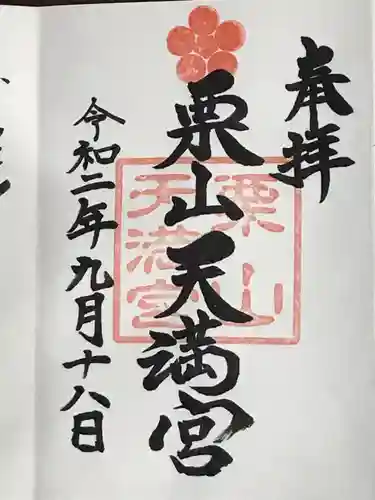 奉拝
栗山天満宮
栗山
天満宮
令和二年九月十八日